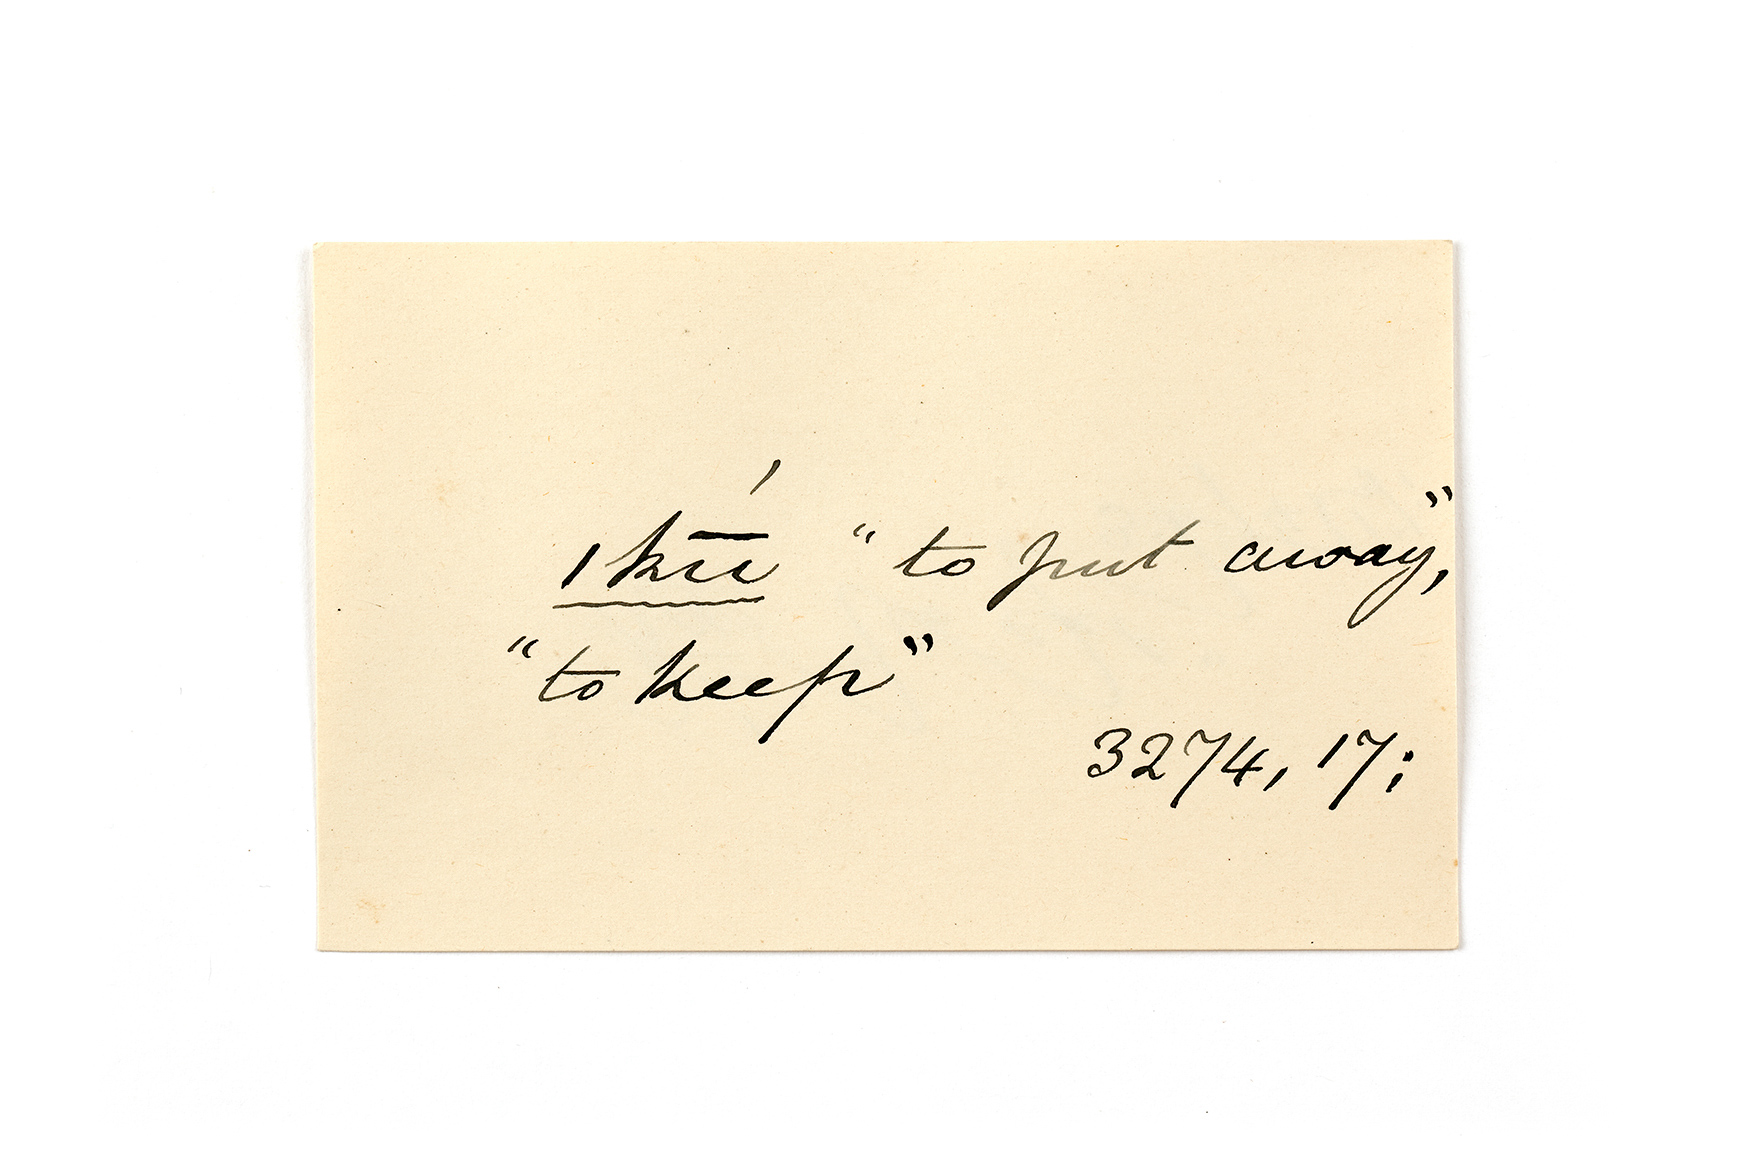 ıkīı́ “to put away,”
“to keep”
3274, 17;